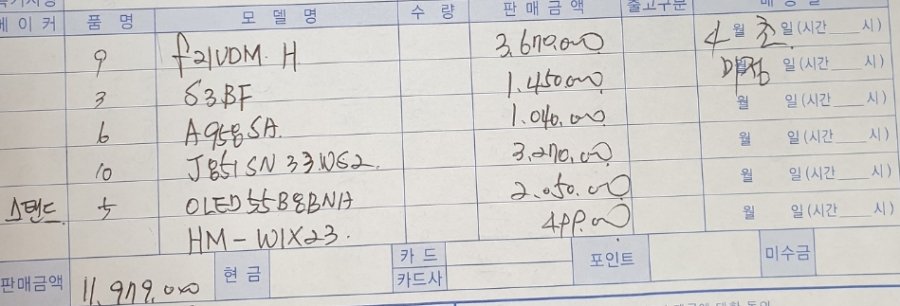 메이커 품 명 모 델 명 수 량 판 매 금 액 출고구분
9 F21VDM. H 3.670.000 4월 초 일(시간 시)
3 S3BF 1.450.000 미정 일(시간 시)
6 A958SA. 1.040.000 월 일(시간 시)
10 J851SN33.W62. 3.270.000 월 일(시간 시)
스탠드 5 OLED55B8BNA 2.050.00 월 일(시간 시)
HM-WIX23. 499.00 월 일(시간 시)
판매금액 11,979.000 현 금 카 드 포인트 미수금
카드사